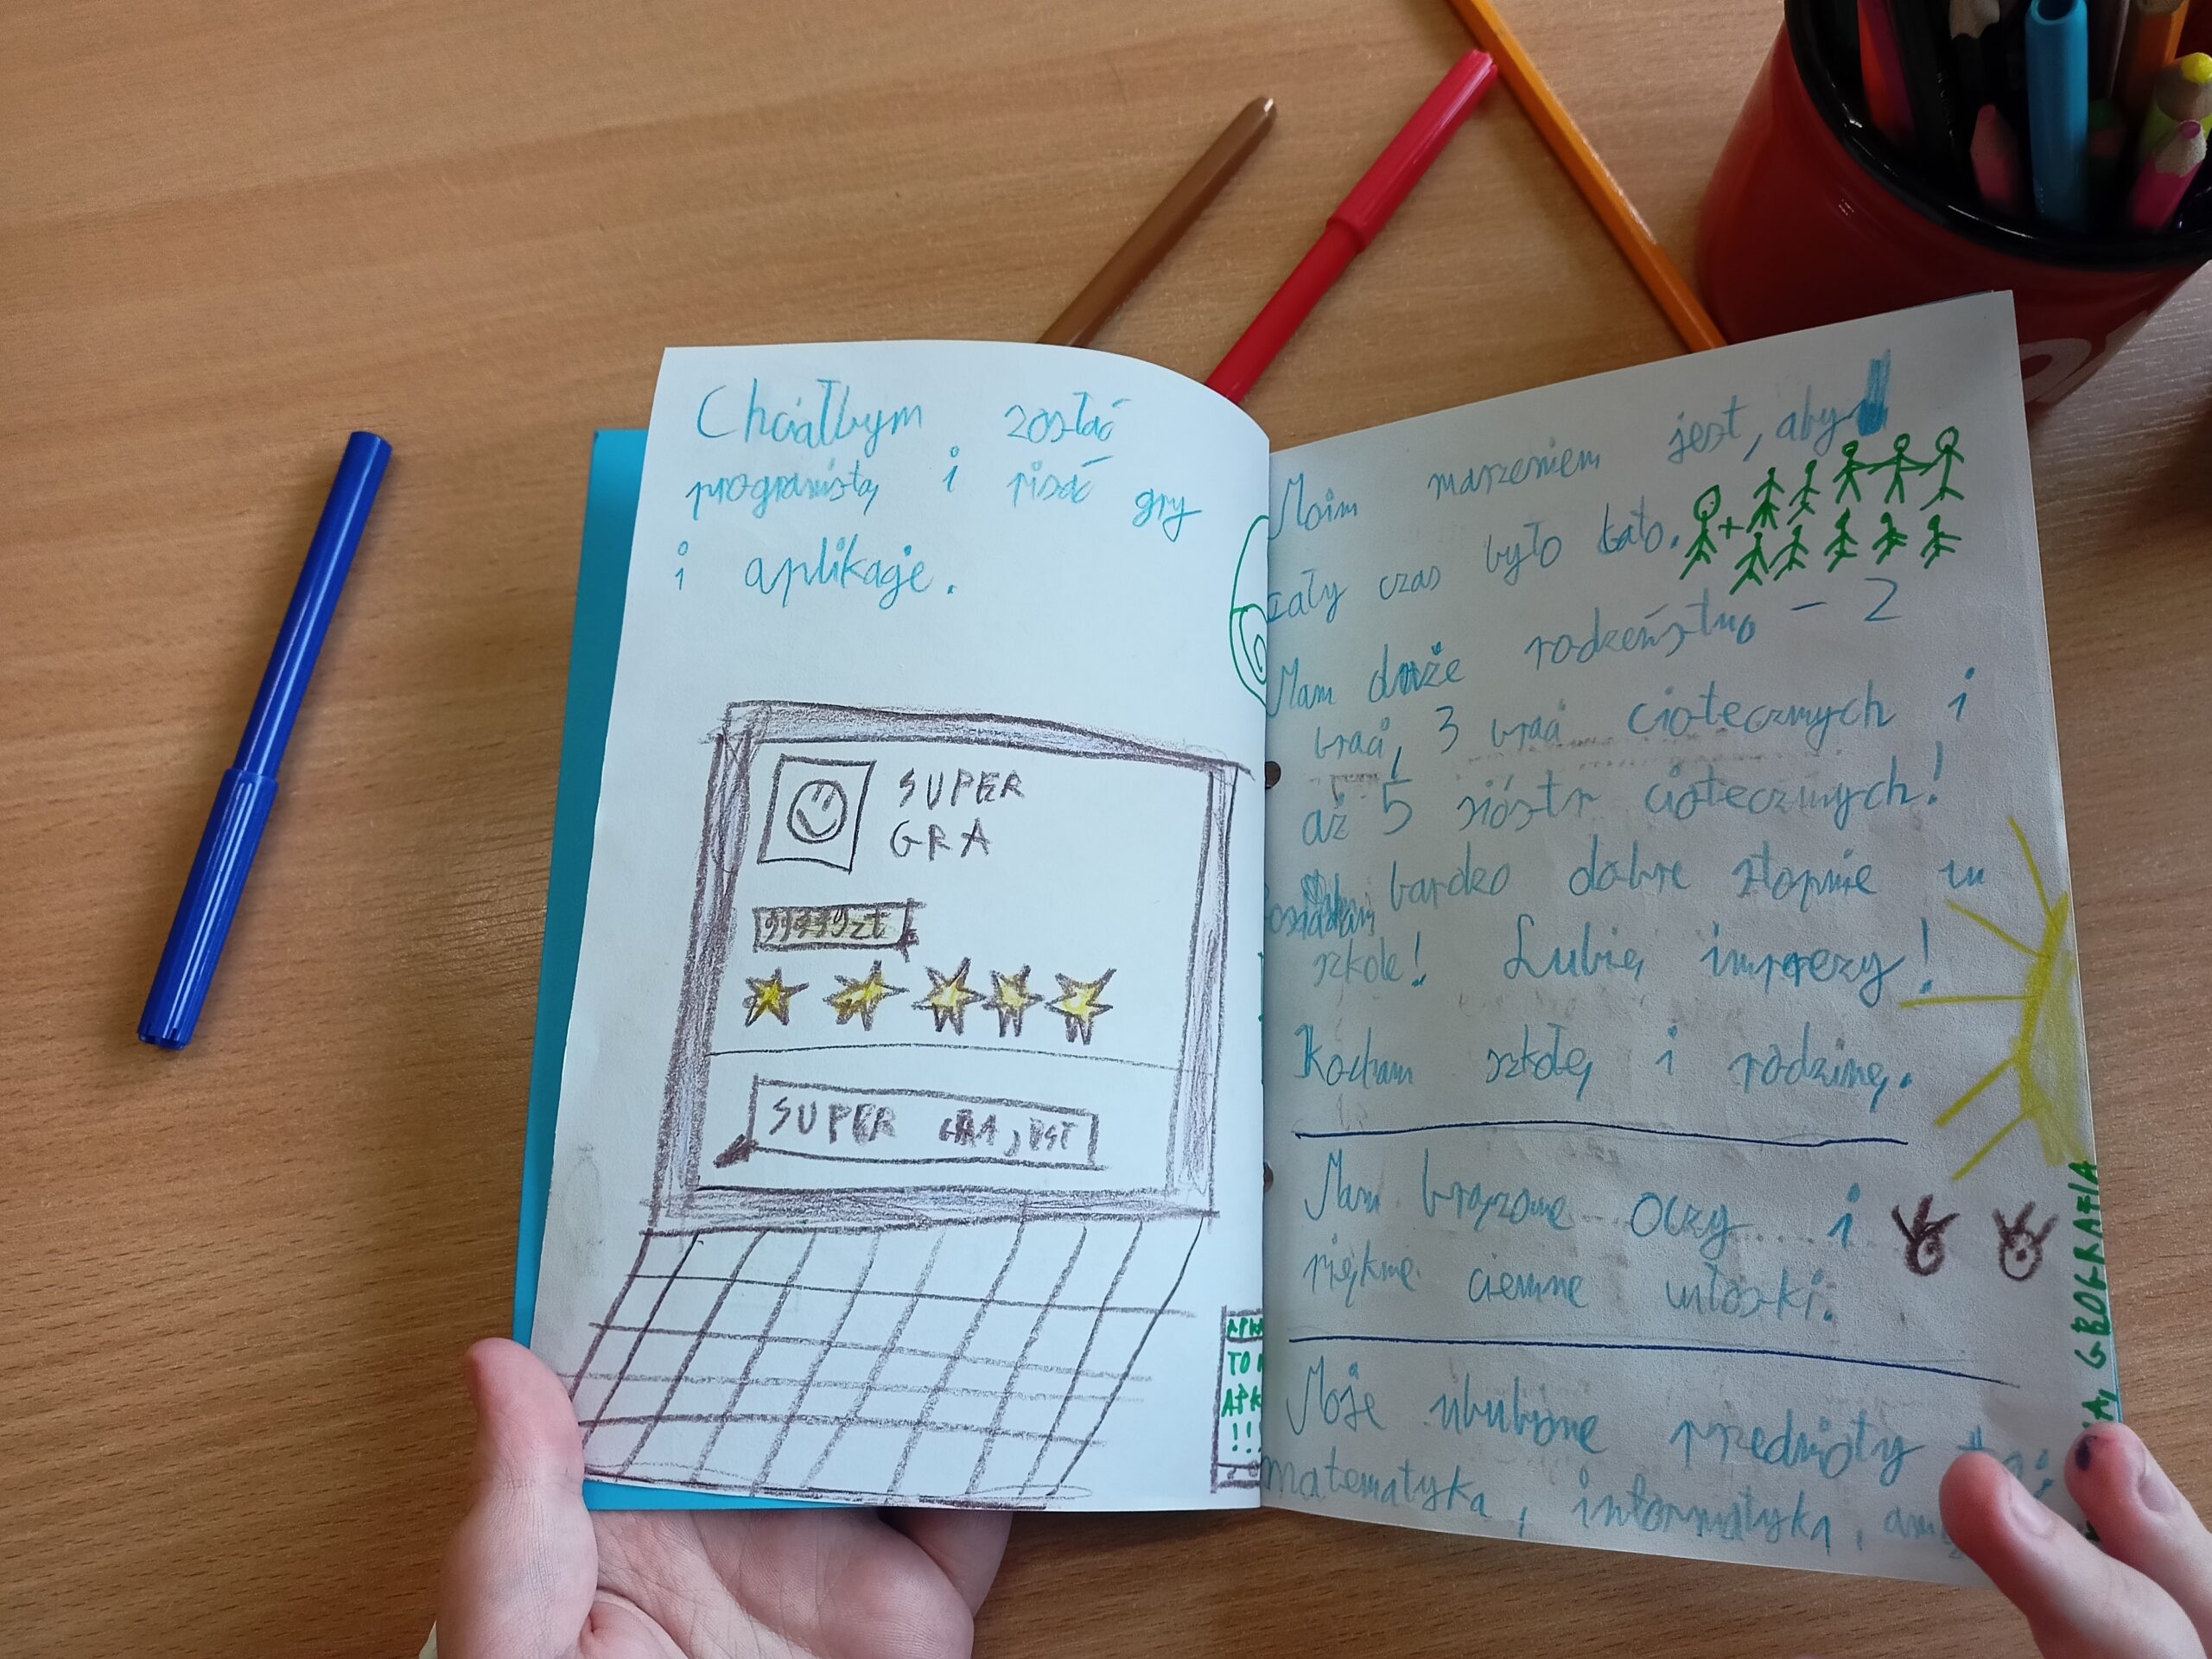 Chciałbym zostać
programistą i pisać gry
i aplikacje.
SUPER
GRA
SUPER GRA, JEST
TO
APK
!!!
Moim marzeniem jest, aby
cały czas było lato.
Mam duże rodzeństwo - 2
braci, 3 braci ciotecznych i
aż 5 sióstr ciotecznych!
bardzo dobre stopnie w
szkole! Lubię imprezy!
Kocham szkołę i rodzinę.
Mam brązowe oczy i
piękne ciemne włoski.
Moje ulubione przedmioty to:
matematyka, informatyka,
GEOGRAFIA